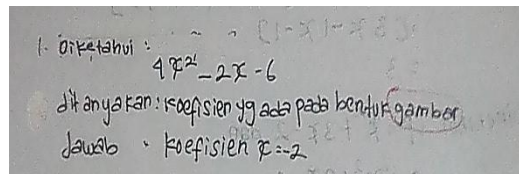 1. Diketahui :
4x² - 2x - 6
ditanyakan : koefisien yg ada pada bentuk gambar
Jawab : koefisien x = -2